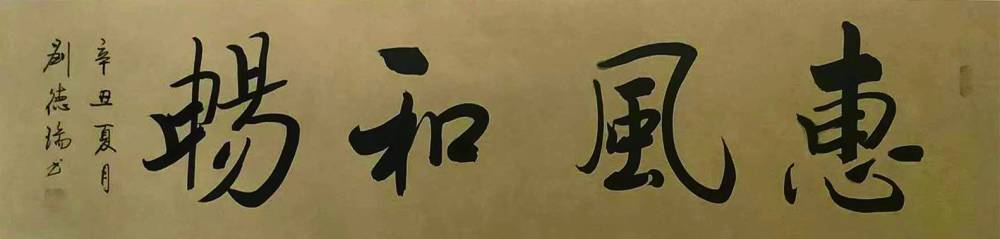 惠風和暢
辛丑夏月
劉德瑞书